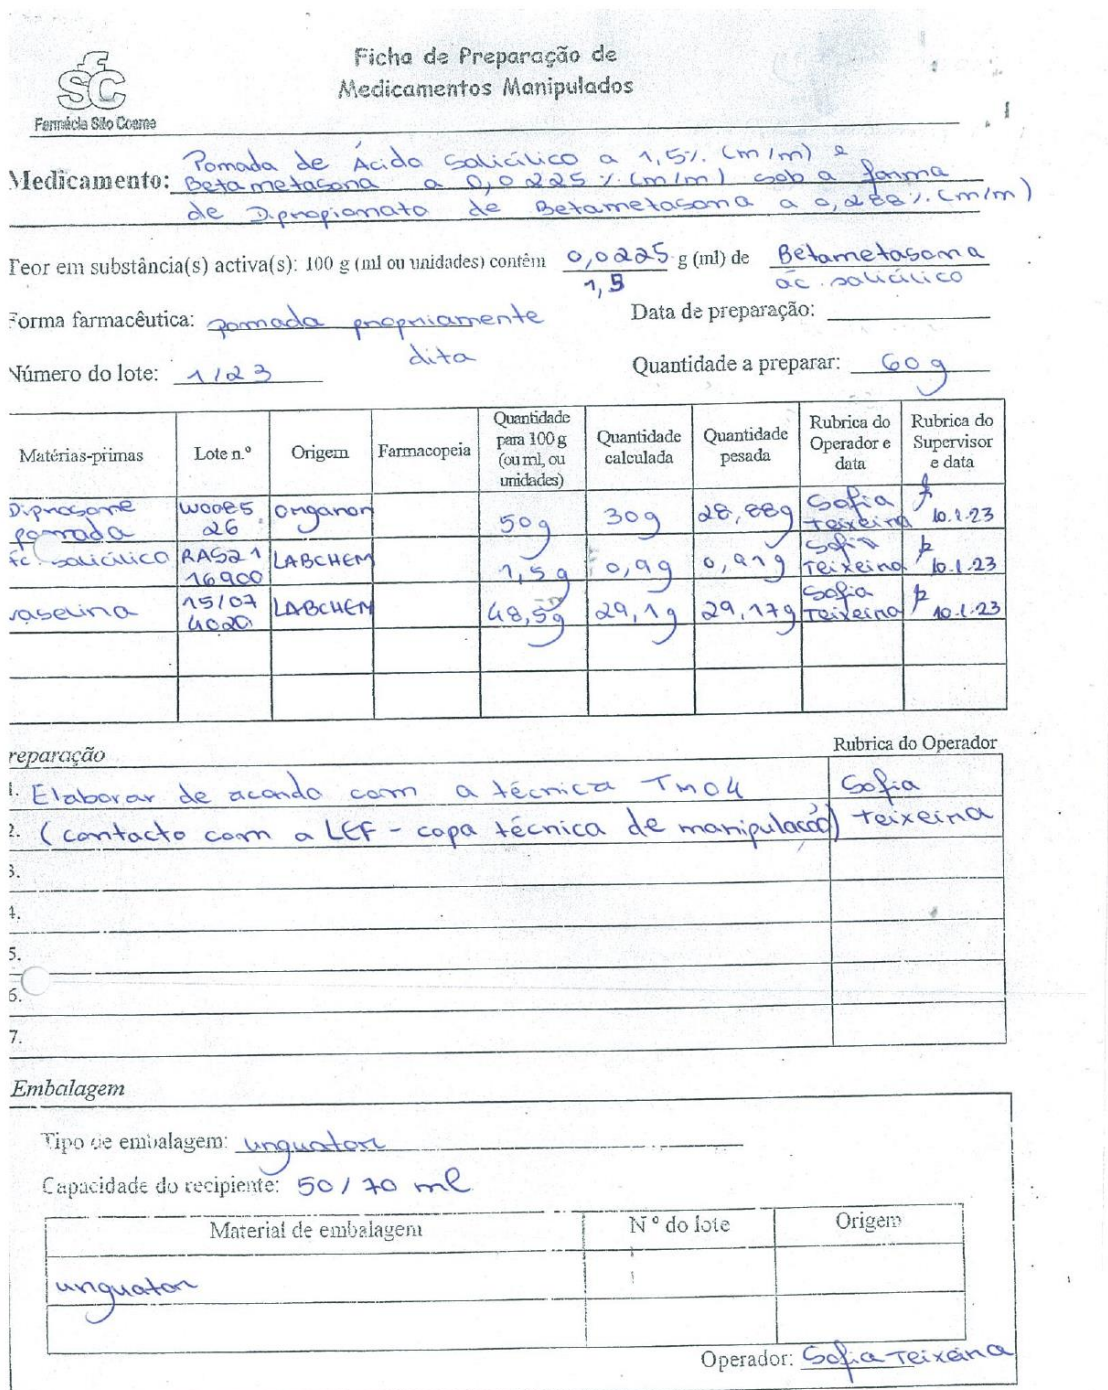 Ficha de Preparação de
Medicamentos Manipulados
sfc
Farmácia São Cosme
Medicamento: Pomada de Ácido Salicílico a 1,5% (m/m) e
Betametasona a 0,0225% (m/m) sob a forma
de Dipropionato de Betametasona a 0,288% (m/m)
Teor em substância(s) activa(s): 100 g (ml ou unidades) contêm 0,0225 g (ml) de Betametasona
1,5 ac. salicílico
Forma farmacêutica: pomada propriamente dita
Data de preparação:
Número do lote: 1/23
Quantidade a preparar: 60 g
Matérias-primas Lote n.º Origem Farmacopeia Quantidade para 100 g (ou ml, ou unidades) Quantidade calculada Quantidade pesada Rubrica do Operador e data Rubrica do Supervisor e data
Diprosone pomada W008526 Organon 50g 30g 28,88g Sofia Teixeira 10.1.23
ác. salicílico RAS21 16900 LABCHEM 1,5g 0,9g 0,91g Sofia Teixeira 10.1.23
vaselina 15/07 4020 LABCHEM 48,5g 29,1g 29,17g Sofia Teixeira 10.1.23
reparação
Rubrica do Operador
1. Elaborar de acordo com a técnica TM04 Sofia
2. (contacto com a LEF - copa técnica de manipulação) Teixeira
3.
4.
5.
6.
7.
Embalagem
Tipo de embalagem: unguator
Capacidade do recipiente: 50 / 70 ml
Material de embalagem Nº do lote Origem
unguator
Operador: Sofia Teixeira